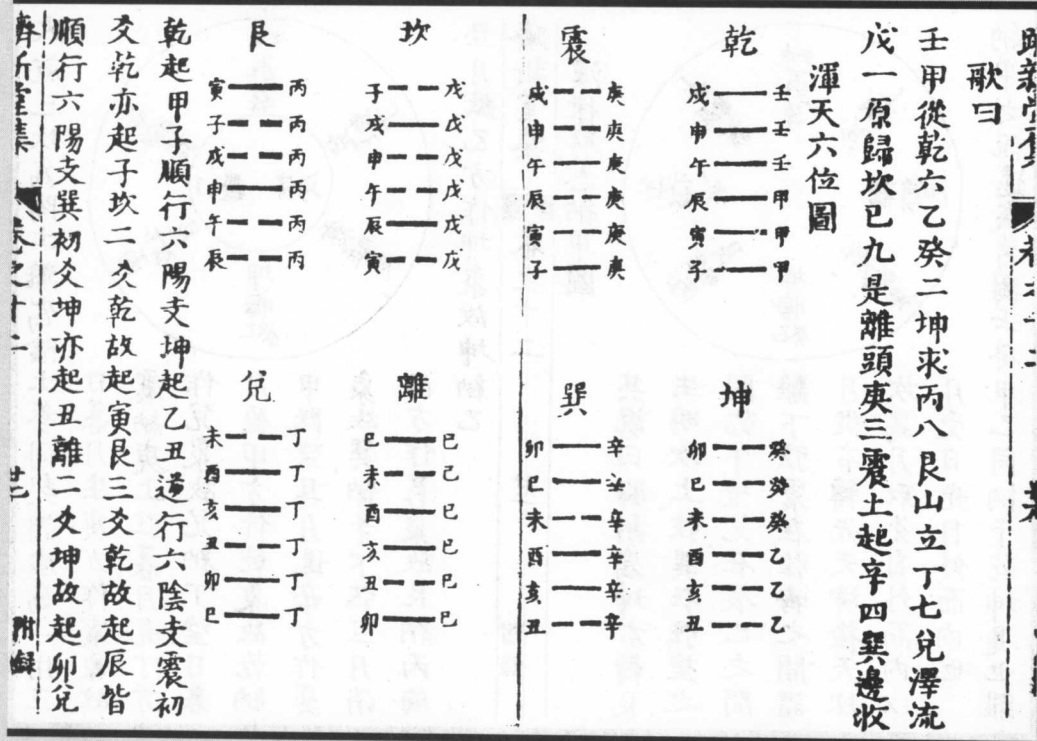 歌曰
壬甲從乾六乙癸二坤求丙八艮山立丁七兌澤流
戊一原歸坎已九是離頭庚三震上起辛四巽邊收
渾天六位圖
乾
戌 壬
申 壬
午 壬
辰 甲
寅 甲
子 甲
坤
卯 癸
巳 癸
未 癸
酉 乙
亥 乙
丑 乙
震
戌 庚
申 庚
午 庚
辰 庚
寅 庚
子 庚
巽
卯 辛
巳 辛
未 辛
酉 辛
亥 辛
丑 辛
坎
子 戊
戌 戊
申 戊
午 戊
辰 戊
寅 戊
離
巳 已
未 己
酉 已
亥 已
丑 已
卯 已
艮
寅 丙
子 丙
戌 丙
申 丙
午 丙
辰 丙
兌
未 丁
酉 丁
亥 丁
丑 丁
卯 丁
巳 丁
乾起甲子順行六陽支坤起乙丑逆行六陰支震初
爻乾亦起子坎二爻乾故起寅艮三爻乾故起辰皆
順行六陽支巽初爻坤亦起丑離二爻坤故起卯兌
卷之十二
附錄